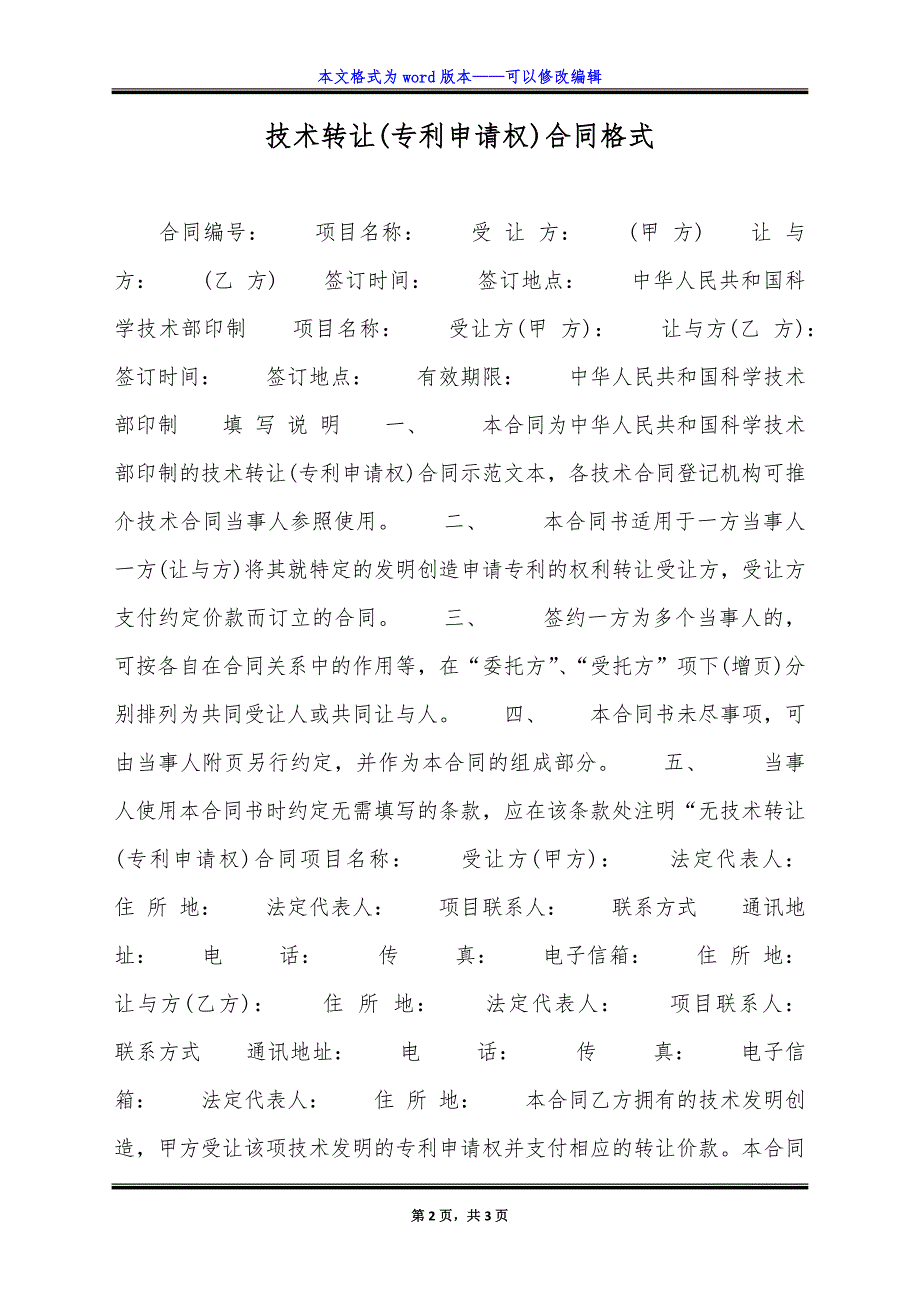 本文格式为 word 版本——可以修改编辑
技术转让(专利申请权)合同格式
合同编号： 项目名称： 受 让 方： (甲 方) 让 与
方： (乙 方) 签订时间： 签订地点： 中华人民共和国科
学技术部印制 项目名称： 受让方(甲 方)： 让与方(乙 方)：
签订时间： 签订地点： 有效期限： 中华人民共和国科学技术
部印制 填 写 说 明 一、 本合同为中华人民共和国科学技术
部印制的技术转让(专利申请权)合同示范文本，各技术合同登记机构可推
介技术合同当事人参照使用。 二、 本合同书适用于一方当事人
一方(让与方)将其就特定的发明创造申请专利的权利转让受让方，受让方
支付约定价款而订立的合同。 三、 签约一方为多个当事人的，
可按各自在合同关系中的作用等，在“委托方”、“受托方”项下(增页)分
别排列为共同受让人或共同让与人。 四、 本合同书未尽事项，可
由当事人附页另行约定，并作为本合同的组成部分。 五、 当事
人使用本合同书时约定无需填写的条款，应在该条款处注明“无技术转让
(专利申请权)合同项目名称： 受让方(甲方)： 法定代表人：
住 所 地： 法定代表人： 项目联系人： 联系方式 通讯地
址： 电 话： 传 真： 电子信箱： 住 所 地：
让与方(乙方)： 住 所 地： 法定代表人： 项目联系人：
联系方式 通讯地址： 电 话： 传 真： 电子信
箱： 法定代表人： 住 所 地： 本合同乙方拥有的技术发明创
造，甲方受让该项技术发明的专利申请权并支付相应的转让价款。本合同
第 2 页，共 3 页